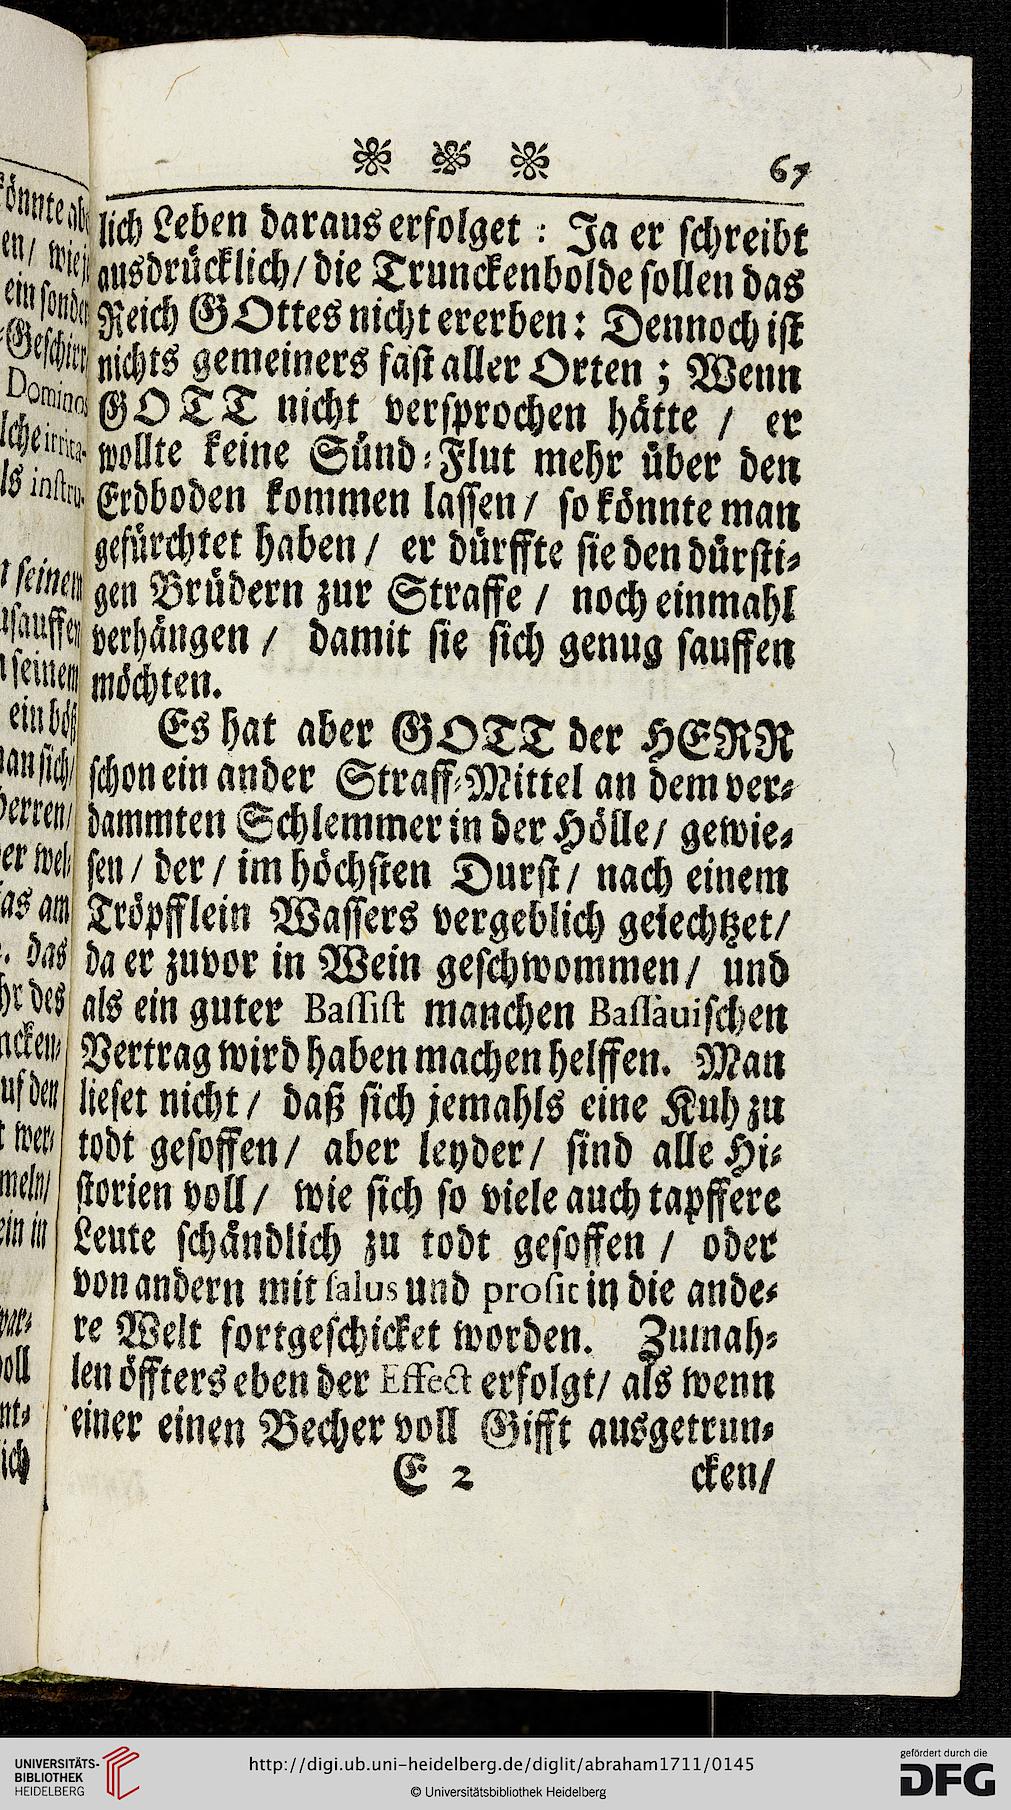 67
lich Leben daraus erfolget : Ja er schreibt
ausdrücklich/ die Trunckenbolde sollen das
Reich GOttes nicht ererben: Dennoch ist
nichts gemeiners fast aller Orten ; Wenn
GOTT nicht versprochen hätte / er
wollte keine Sünd-Flut mehr über den
Erdboden kommen lassen/ so könnte man
gefürchtet haben/ er dürffte sie den dürsti-
gen Brüdern zur Straffe / noch einmahl
verhängen / damit sie sich genug sauffen
möchten.
Es hat aber GOTT der HERR
schon ein ander Straff-Mittel an dem ver-
dammten Schlemmer in der Hölle/ gewie-
sen / der / im höchsten Durst/ nach einem
Tröpfflein Wassers vergeblich gelechtzet/
da er zuvor in Wein geschwommen/ und
als ein guter Bassist manchen Bassauischen
Vertrag wird haben machen helffen. Man
lieset nicht/ daß sich jemahls eine Kuh zu
todt gesoffen/ aber leyder/ sind alle Hi-
storien voll/ wie sich so viele auch tapffere
Leute schändlich zu todt gesoffen / oder
von andern mit salus und prosit in die ande-
re Welt fortgeschicket worden. Zumah-
len öffters eben der Effect erfolgt/ als wenn
einer einen Becher voll Gifft ausgetrun-
E 2 cken/
könnte
en/ wie
ein
Dominos
n seinem
n seinem
ein böß
man sich/
er wel-
das am
. das
des
ncken-
uf den
wer-
meln/
ein in
war-
voll
nt-
lich
UNIVERSITÄTS-
BIBLIOTHEK
HEIDELBERG
http://digi.ub.uni-heidelberg.de/diglit/abraham1711/0145
© Universitätsbibliothek Heidelberg
gefördert durch die
DFG